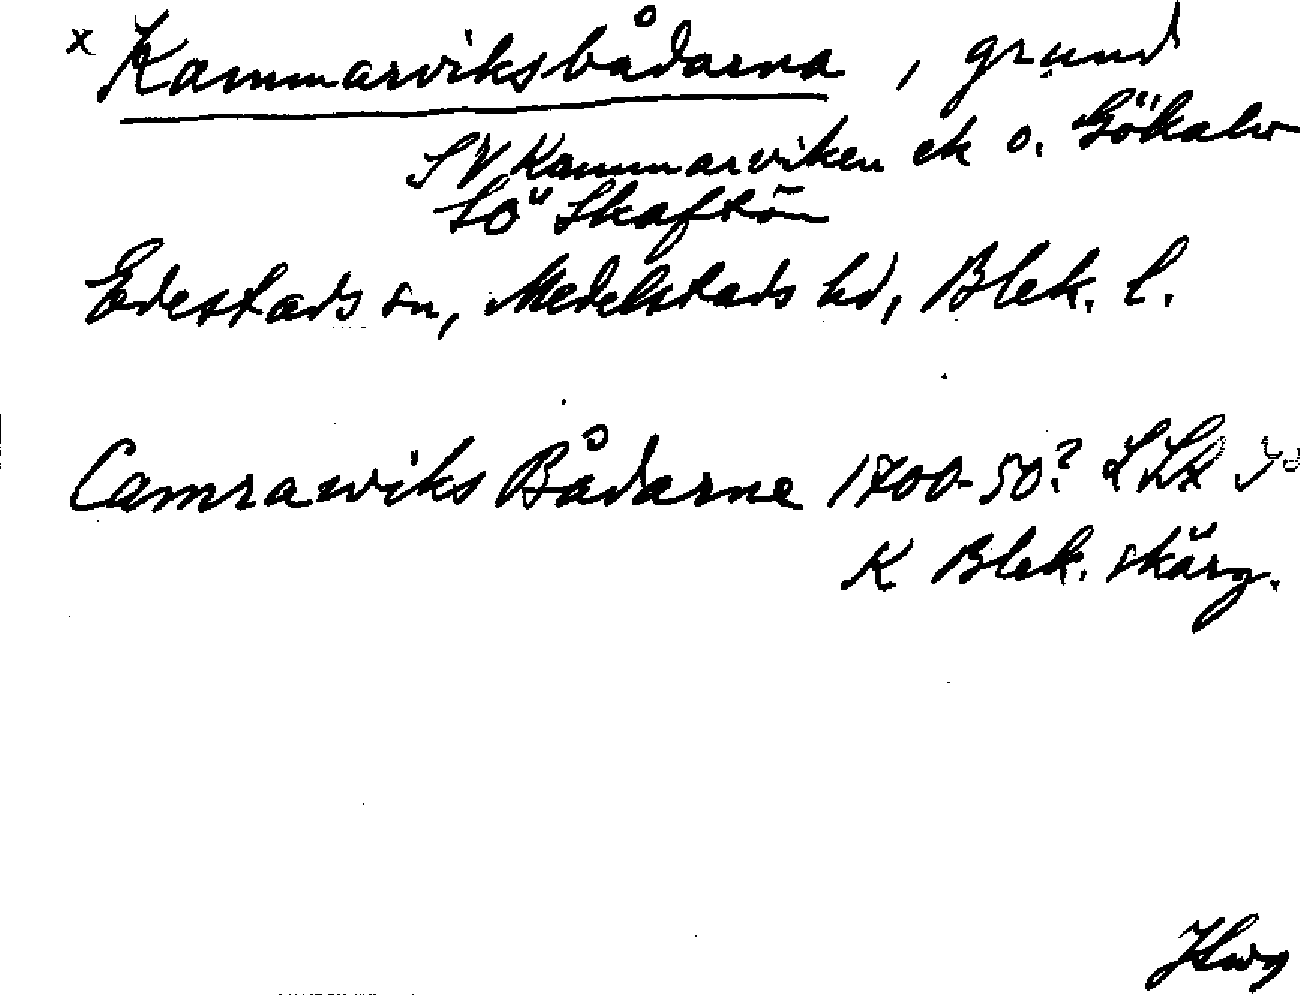 x Kammarviksbådarna, grund
SV Kammarviken ek o. Gökalv
SÖ Skaftön
Edestads sn, Medelstads hd, Blek. l.
Camrawiks Bådarne 1700-50?
K Blek. skärg.